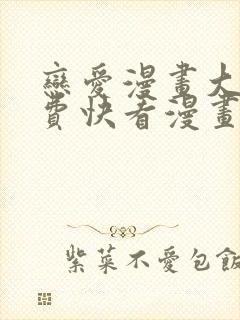 戀愛漫畫大
費快看漫畫
紫菜不愛包飯